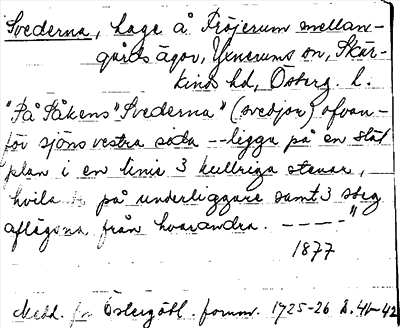 Svederna, hage å Fröjerum mellan-
gårds ägor, Yxnerums sn, Skär-
kinds hd, Österg. l.
"På Påkens "Svederna" (svedjor) ofvan-
för sjöns vestra sida -- ligga på en slät
plan i en linie 3 kullriga stenar,
hvila på underliggare samt 3 steg
aflägsna, från hvarandra. ----"
1877
Medd. fr. Östergötl. fornm. 1925-26 s. 41-42